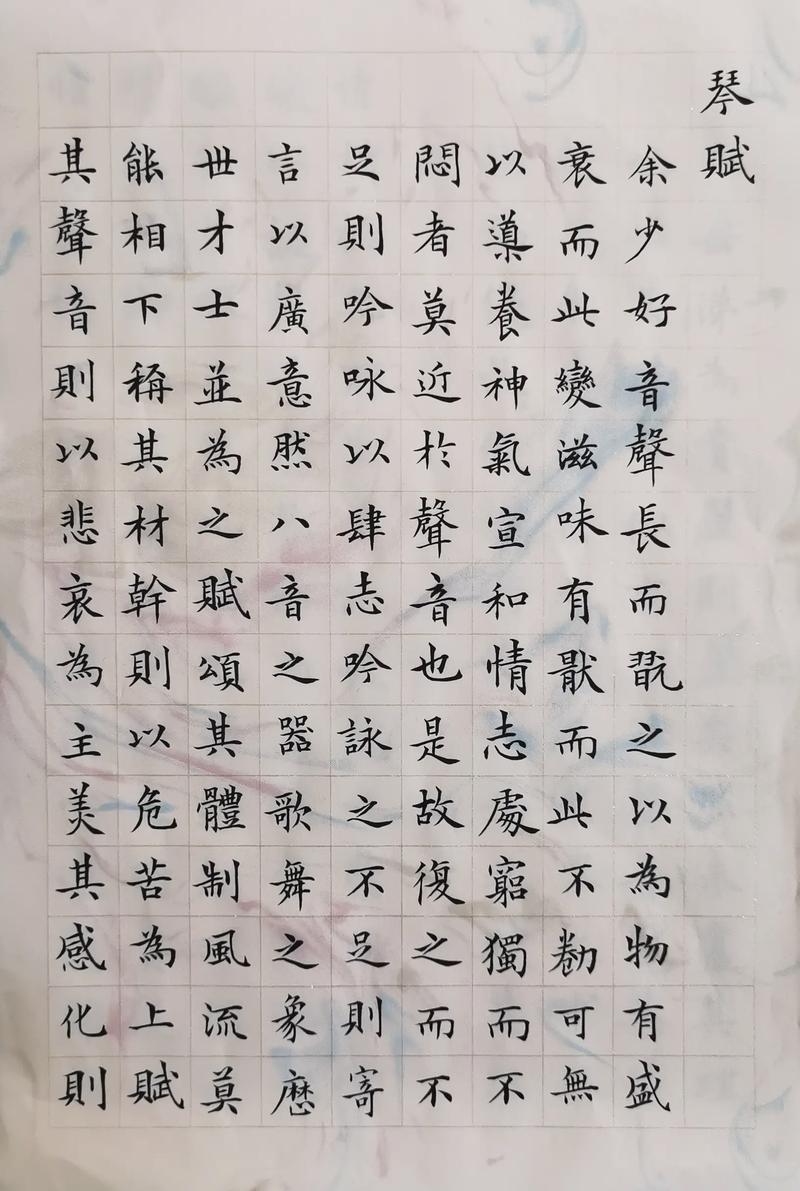 琴賦
余少好音聲長而翫之以為物有盛
衰而此變滋味有猒而此不勌可無
以導養神氣宣和情志處窮獨而不
悶者莫近於聲音也是故復之而不
足則吟咏以肆志吟詠之不足則寄
言以廣意然八音之器歌舞之象歷
世才士並為之賦頌其體制風流莫
能相下稱其材幹則以危苦為上賦
其聲音則以悲哀為主美其感化則